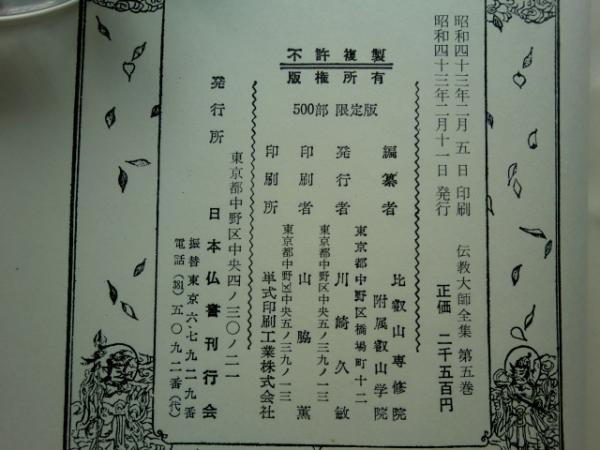 昭和四十三年二月五日 印刷
昭和四十三年二月十一日 発行
伝教大師全集 第五巻
正価 二千五百円
不許複製
版権所有
500部 限定版
編纂者 比叡山専修院
附属叡山学院
東京都中野区橋場町十二
発行者 川崎久敏
東京都中野区中央五ノ三九ノ一三
印刷者 山脇薫
東京都中野区中央五ノ三九ノ一三
印刷所 単式印刷工業株式会社
発行所
東京都中野区中央四ノ三〇ノ二一
日本仏書刊行会
振替東京六七九二九番
電話(381)五〇九二番(代)